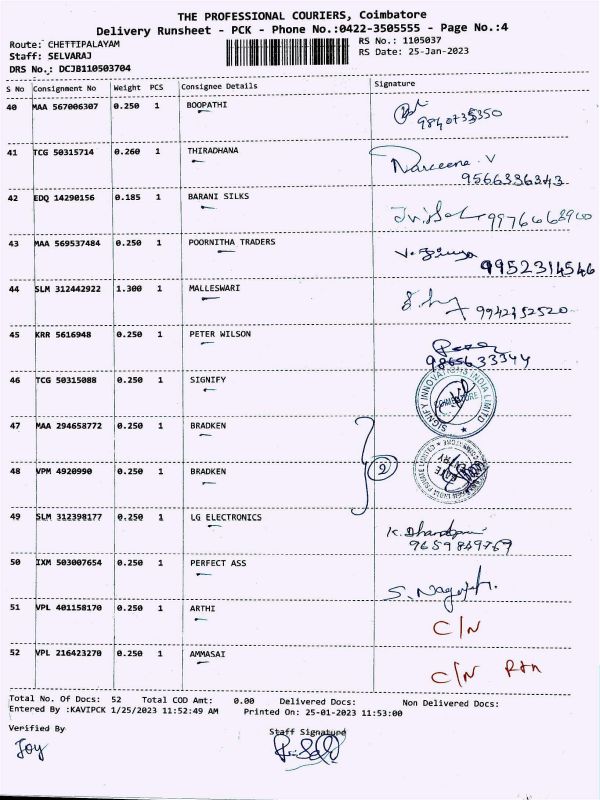 THE PROFESSIONAL COURIERS, Coimbatore
Delivery Runsheet - PCK - Phone No.:0422-3505555 - Page No.:4
Route: CHETTIPALAYAM RS No.: 1105037
Staff: SELVARAJ RS Date: 25-Jan-2023
DRS No.: DCJB110503704
S No Consignment No Weight PCS Consignee Details Signature
40 MAA 567006307 0.250 1 BOOPATHI
9840735350
41 TCG 50315714 0.260 1 THIRADHANA Naveena V
9566336343
42 EDQ 14290156 0.185 1 BARANI SILKS
43 MAA 569537484 0.250 1 POORNITHA TRADERS
9952314546
44 SLM 312442922 1.300 1 MALLESWARI
9942252520
45 KRR 5616948 0.250 1 PETER WILSON
46 TCG 50315088 0.250 1 SIGNIFY SIGNIFY INNOVATIONS INDIA LIMITED COIMBATORE
47 MAA 294658772 0.250 1 BRADKEN
2
48 VPM 4920990 0.250 1 BRADKEN
GATE ENTRY
49 SLM 312398177 0.250 1 LG ELECTRONICS K. Dhandapani
9659849769
50 IXM 503007654 0.250 1 PERFECT ASS
51 VPL 401158170 0.250 1 ARTHI C/N
52 VPL 216423270 0.250 1 AMMASAI C/N
Total No. Of Docs: 52 Total COD Amt: 0.00 Delivered Docs: Non Delivered Docs:
Entered By :KAVIPCK 1/25/2023 11:52:49 AM Printed On: 25-01-2023 11:53:00
Verified By Staff Signature
Joy